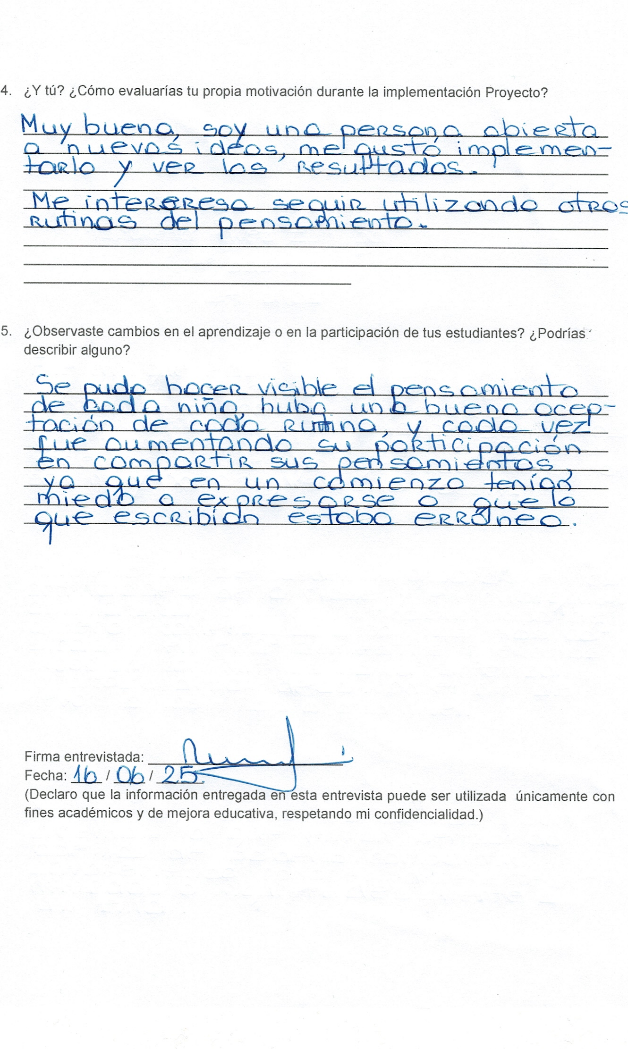 4. ¿Y tú? ¿Cómo evaluarías tu propia motivación durante la implementación Proyecto?
Muy buena, soy una persona abierta
a nuevas ideas, me gustó implemen-
tarlo y ver los resultados.
Me interesa seguir utilizando otros
rutinas del pensamiento.
5. ¿Observaste cambios en el aprendizaje o en la participación de tus estudiantes? ¿Podrías
describir alguno?
Se pudo hacer visible el pensamiento
de cada niño, hubo una buena acep-
tación de cada rutina, y cada vez
fue aumentando su participación
en compartir sus pensamientos,
ya que en un comienzo tenían
miedo a expresarse o que lo
que escribían estaba erróneo.
Firma entrevistada:
Fecha: 16 / 06 / 25
(Declaro que la información entregada en esta entrevista puede ser utilizada únicamente con
fines académicos y de mejora educativa, respetando mi confidencialidad.)